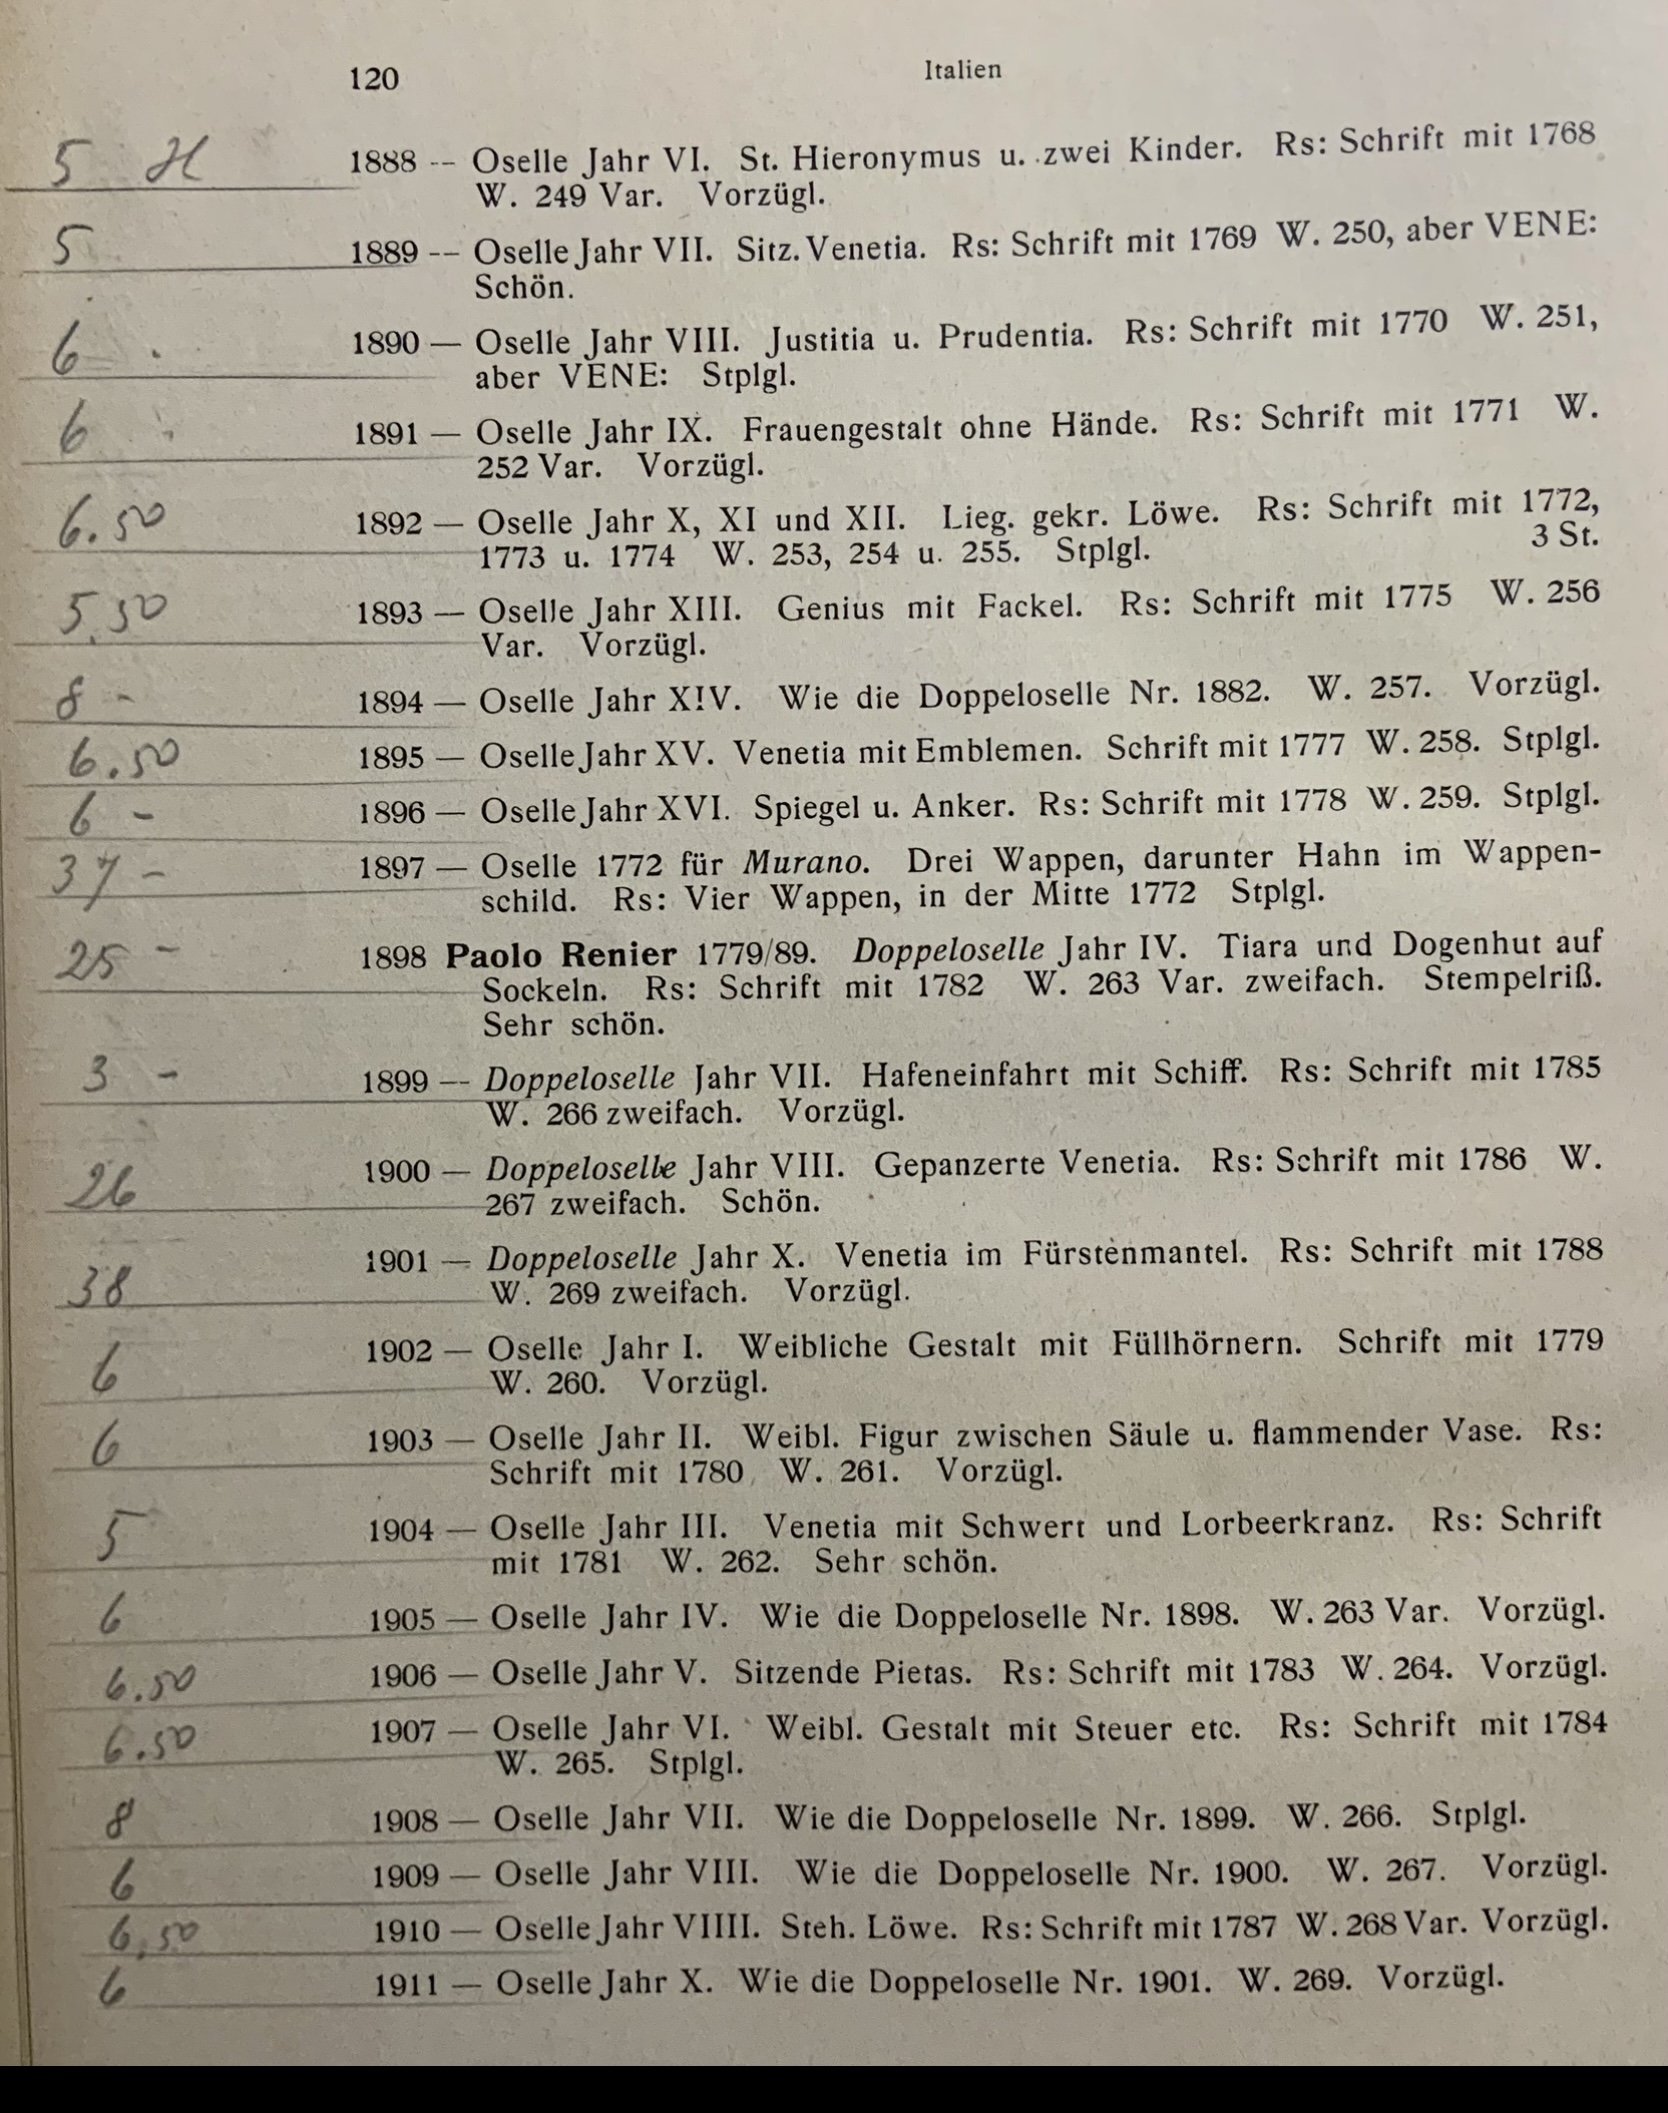 120 Italien
5 H 1888 -- Oselle Jahr VI. St. Hieronymus u. zwei Kinder. Rs: Schrift mit 1768
W. 249 Var. Vorzügl.
5 1889 -- Oselle Jahr VII. Sitz. Venetia. Rs: Schrift mit 1769 W. 250, aber VENE:
Schön.
6 1890 — Oselle Jahr VIII. Justitia u. Prudentia. Rs: Schrift mit 1770 W. 251,
aber VENE: Stplgl.
6 1891 — Oselle Jahr IX. Frauengestalt ohne Hände. Rs: Schrift mit 1771 W.
252 Var. Vorzügl.
6.50 1892 — Oselle Jahr X, XI und XII. Lieg. gekr. Löwe. Rs: Schrift mit 1772,
1773 u. 1774 W. 253, 254 u. 255. Stplgl. 3 St.
5.50 1893 — Oselle Jahr XIII. Genius mit Fackel. Rs: Schrift mit 1775 W. 256
Var. Vorzügl.
8 - 1894 — Oselle Jahr XIV. Wie die Doppeloselle Nr. 1882. W. 257. Vorzügl.
6.50 1895 — Oselle Jahr XV. Venetia mit Emblemen. Schrift mit 1777 W. 258. Stplgl.
6 - 1896 — Oselle Jahr XVI. Spiegel u. Anker. Rs: Schrift mit 1778 W. 259. Stplgl.
37 - 1897 — Oselle 1772 für Murano. Drei Wappen, darunter Hahn im Wappen-
schild. Rs: Vier Wappen, in der Mitte 1772 Stplgl.
25 - 1898 Paolo Renier 1779/89. Doppeloselle Jahr IV. Tiara und Dogenhut auf
Sockeln. Rs: Schrift mit 1782 W. 263 Var. zweifach. Stempelriß.
Sehr schön.
3 - 1899 -- Doppeloselle Jahr VII. Hafeneinfahrt mit Schiff. Rs: Schrift mit 1785
W. 266 zweifach. Vorzügl.
26 1900 — Doppeloselle Jahr VIII. Gepanzerte Venetia. Rs: Schrift mit 1786 W.
267 zweifach. Schön.
38 1901 — Doppeloselle Jahr X. Venetia im Fürstenmantel. Rs: Schrift mit 1788
W. 269 zweifach. Vorzügl.
6 1902 — Oselle Jahr I. Weibliche Gestalt mit Füllhörnern. Schrift mit 1779
W. 260. Vorzügl.
6 1903 — Oselle Jahr II. Weibl. Figur zwischen Säule u. flammender Vase. Rs:
Schrift mit 1780 W. 261. Vorzügl.
5 1904 — Oselle Jahr III. Venetia mit Schwert und Lorbeerkranz. Rs: Schrift
mit 1781 W. 262. Sehr schön.
6 1905 — Oselle Jahr IV. Wie die Doppeloselle Nr. 1898. W. 263 Var. Vorzügl.
6.50 1906 — Oselle Jahr V. Sitzende Pietas. Rs: Schrift mit 1783 W. 264. Vorzügl.
6.50 1907 — Oselle Jahr VI. Weibl. Gestalt mit Steuer etc. Rs: Schrift mit 1784
W. 265. Stplgl.
8 1908 — Oselle Jahr VII. Wie die Doppeloselle Nr. 1899. W. 266. Stplgl.
6 1909 — Oselle Jahr VIII. Wie die Doppeloselle Nr. 1900. W. 267. Vorzügl.
6.50 1910 — Oselle Jahr VIIII. Steh. Löwe. Rs: Schrift mit 1787 W. 268 Var. Vorzügl.
6 1911 — Oselle Jahr X. Wie die Doppeloselle Nr. 1901. W. 269. Vorzügl.